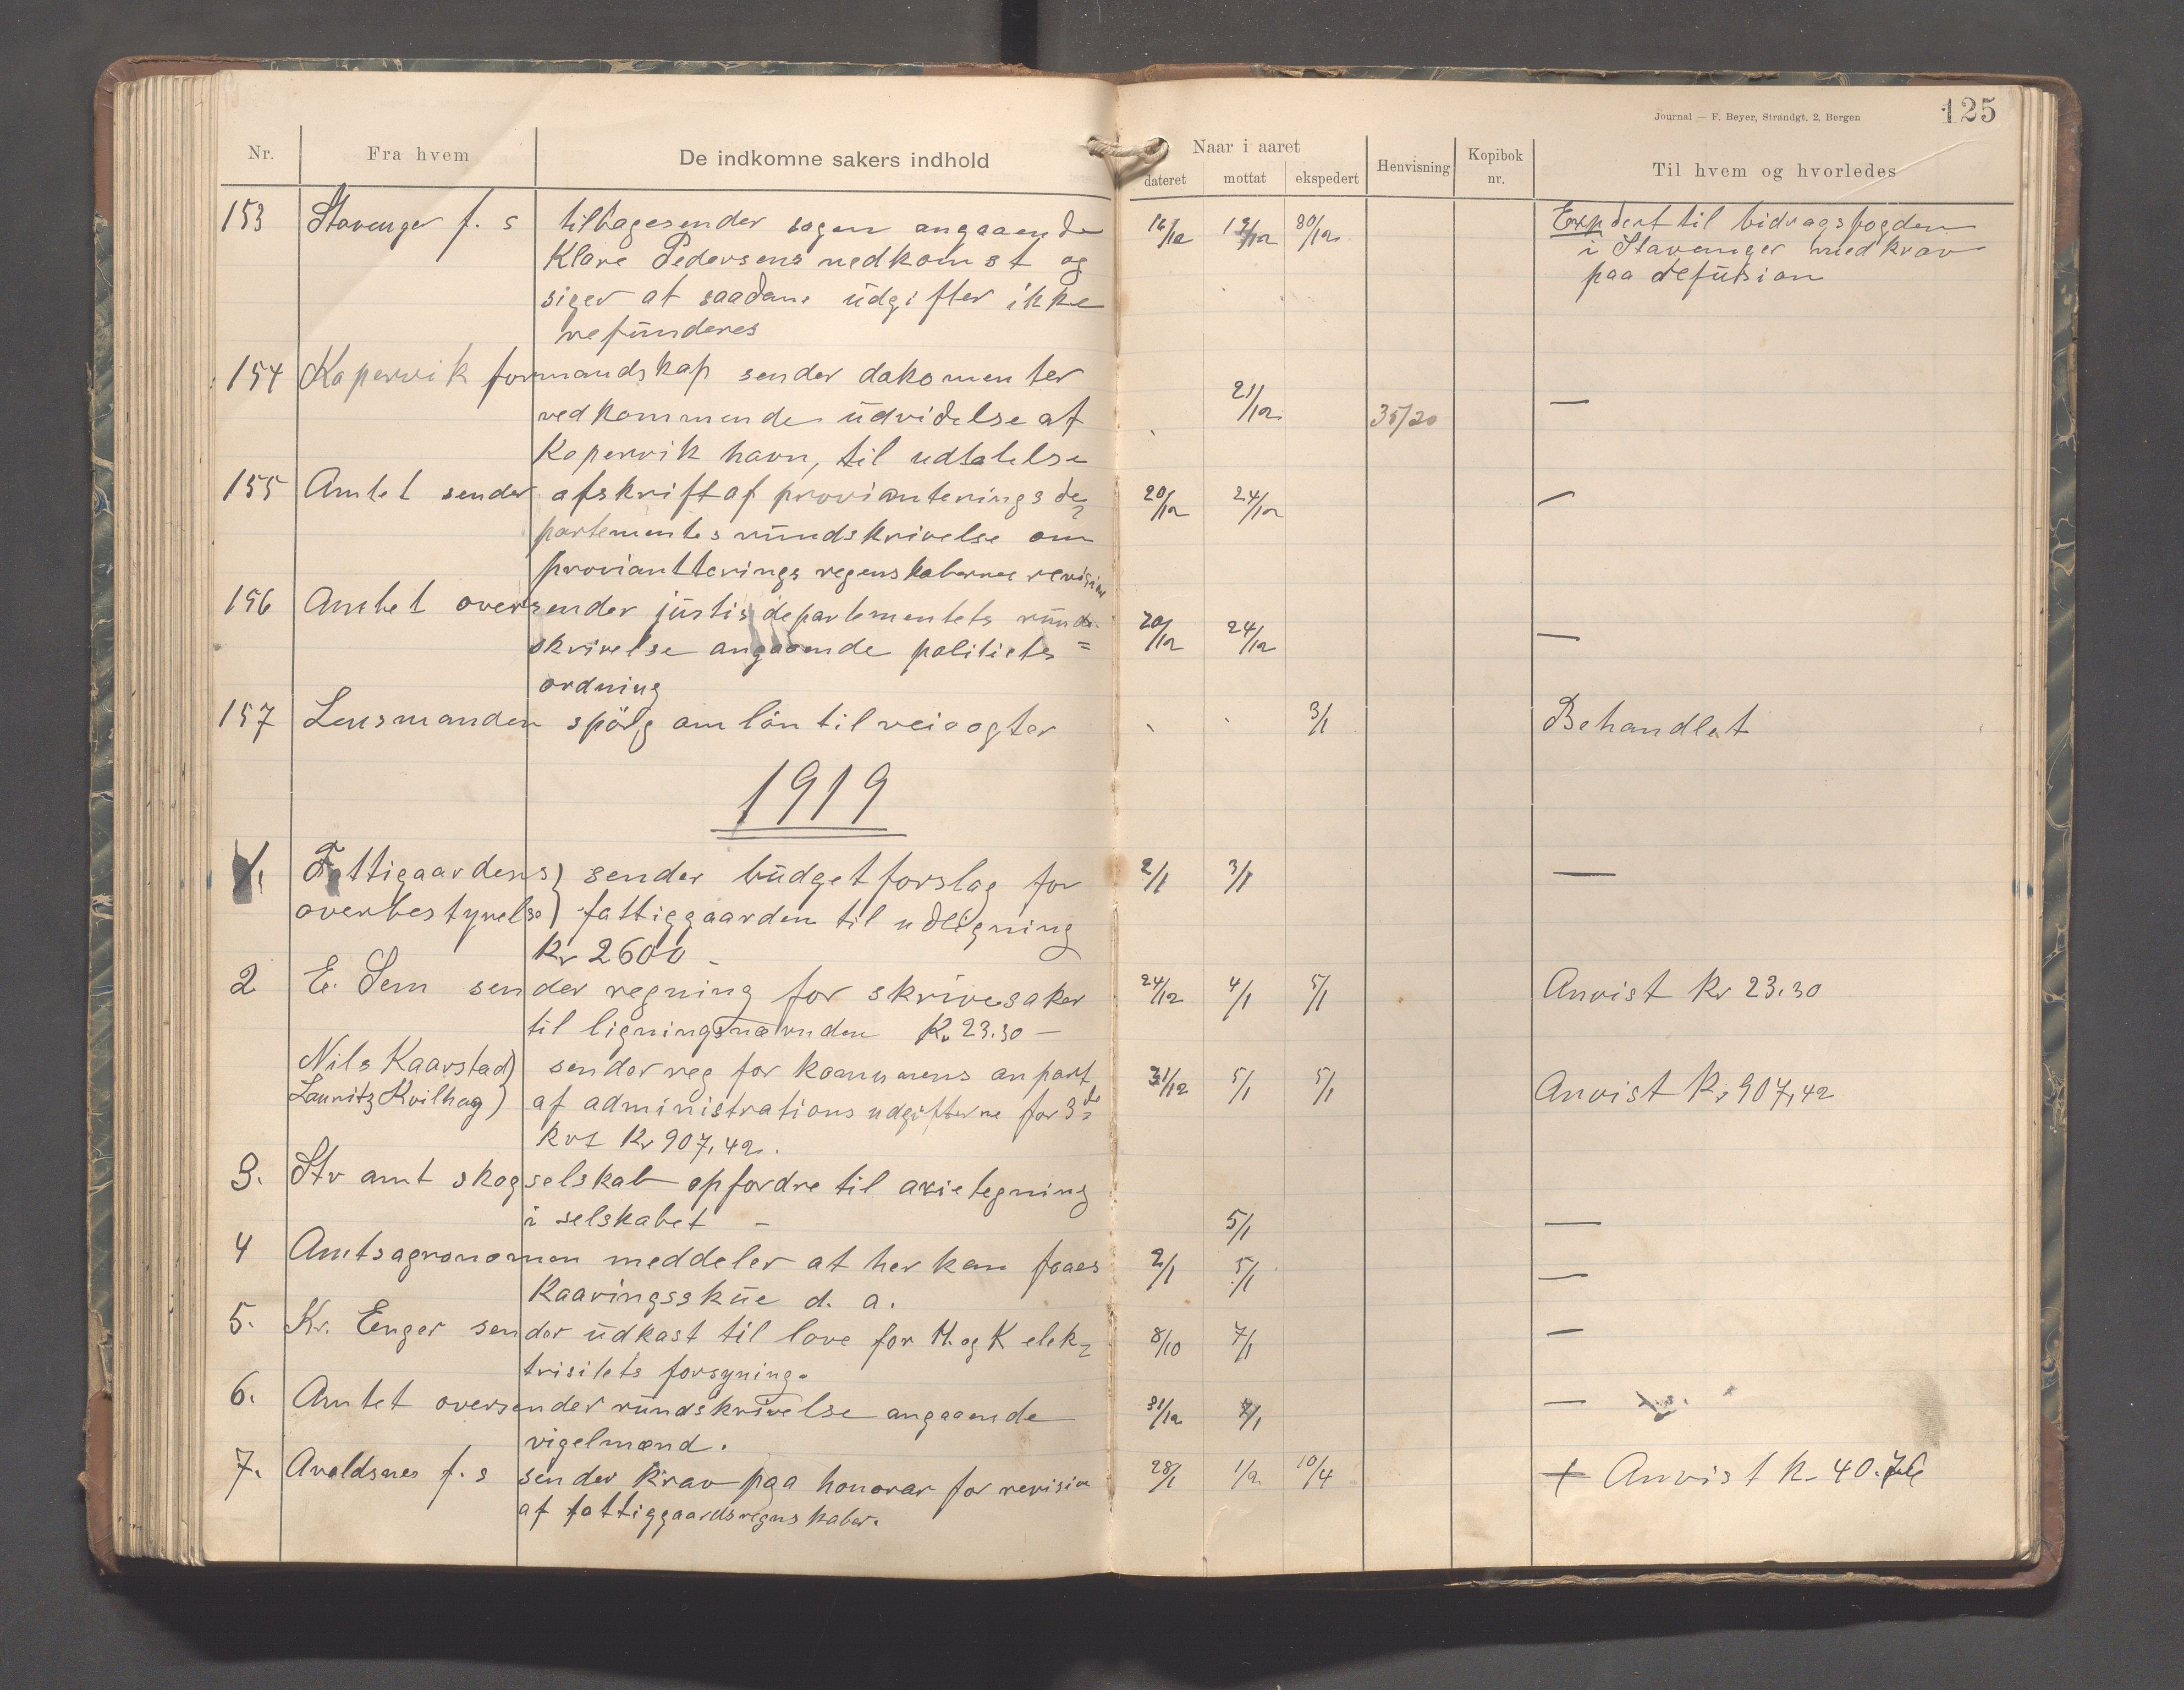 Journal — F. Beyer, Strandgt. 2, Bergen 125
Nr. Fra hvem De indkomne sakers indhold Naar i aaret Henvisning Kopibok nr. Til hvem og hvorledes
dateret mottat ekspedert
153 Stavanger f. s tilbagesender sagen angaaende 16/12 19/12 30/12 Expdert til bidragsfogden
Klara Pedersens nedkomst og i Stavanger med krav
siger at saadane udgifter ikke paa defusion
refunderes
154 Kopervik formandskap sender dokomenter 21/12 35/20 —
vedkommende udvidelse af
Kopervik havn, til udtalelse
155 Amtet sender afskrift af provianterings de= 20/12 24/12 —
partementes rundskrivelse om
provianterings regenskabernes revision
156 Amtet oversender justisdepartementets rund= 20/12 24/12 —
skrivelse angaaende politiets =
ordning
157 Lensmanden spörg om lån til veivogter 3/1 Behandlet
1919
1. Fattigaardens sender budgetforslag for 2/1 3/1 —
overbestyrelse fattiggaarden til udligning
Kr 2600 -
2 E. Sem sender regning for skrivesaker 24/12 4/1 5/1 Anvist Kr 23.30
til ligningsnævnden Kr 23.30 —
Nils Kaarstad sender reg for kommunens anpart 31/12 5/1 5/1 Anvist Kr 907,42
Lauritz Kvilhag af administrations udgifterne for 3de
kvt Kr 907,42.
3. Stv amt skogselskab opfordre til axietegning
i selskabet — 5/1 —
4 Amtsagronomen meddeler at her kan faaes 2/1 5/1 —
Kaaringsskue d. a.
5. Kr. Enger sender udkast til love for H. og K elek= 8/10 7/1 —
trisitets forsyning.
6. Amtet oversender rundskrivelse angaaende 31/12 7/1 —
vigelmænd.
7. Avaldsnes f. s sender krav paa honorar for revision 28/1 1/2 10/4 + Anvist kr 40.
af fattiggaardsregnskaber.